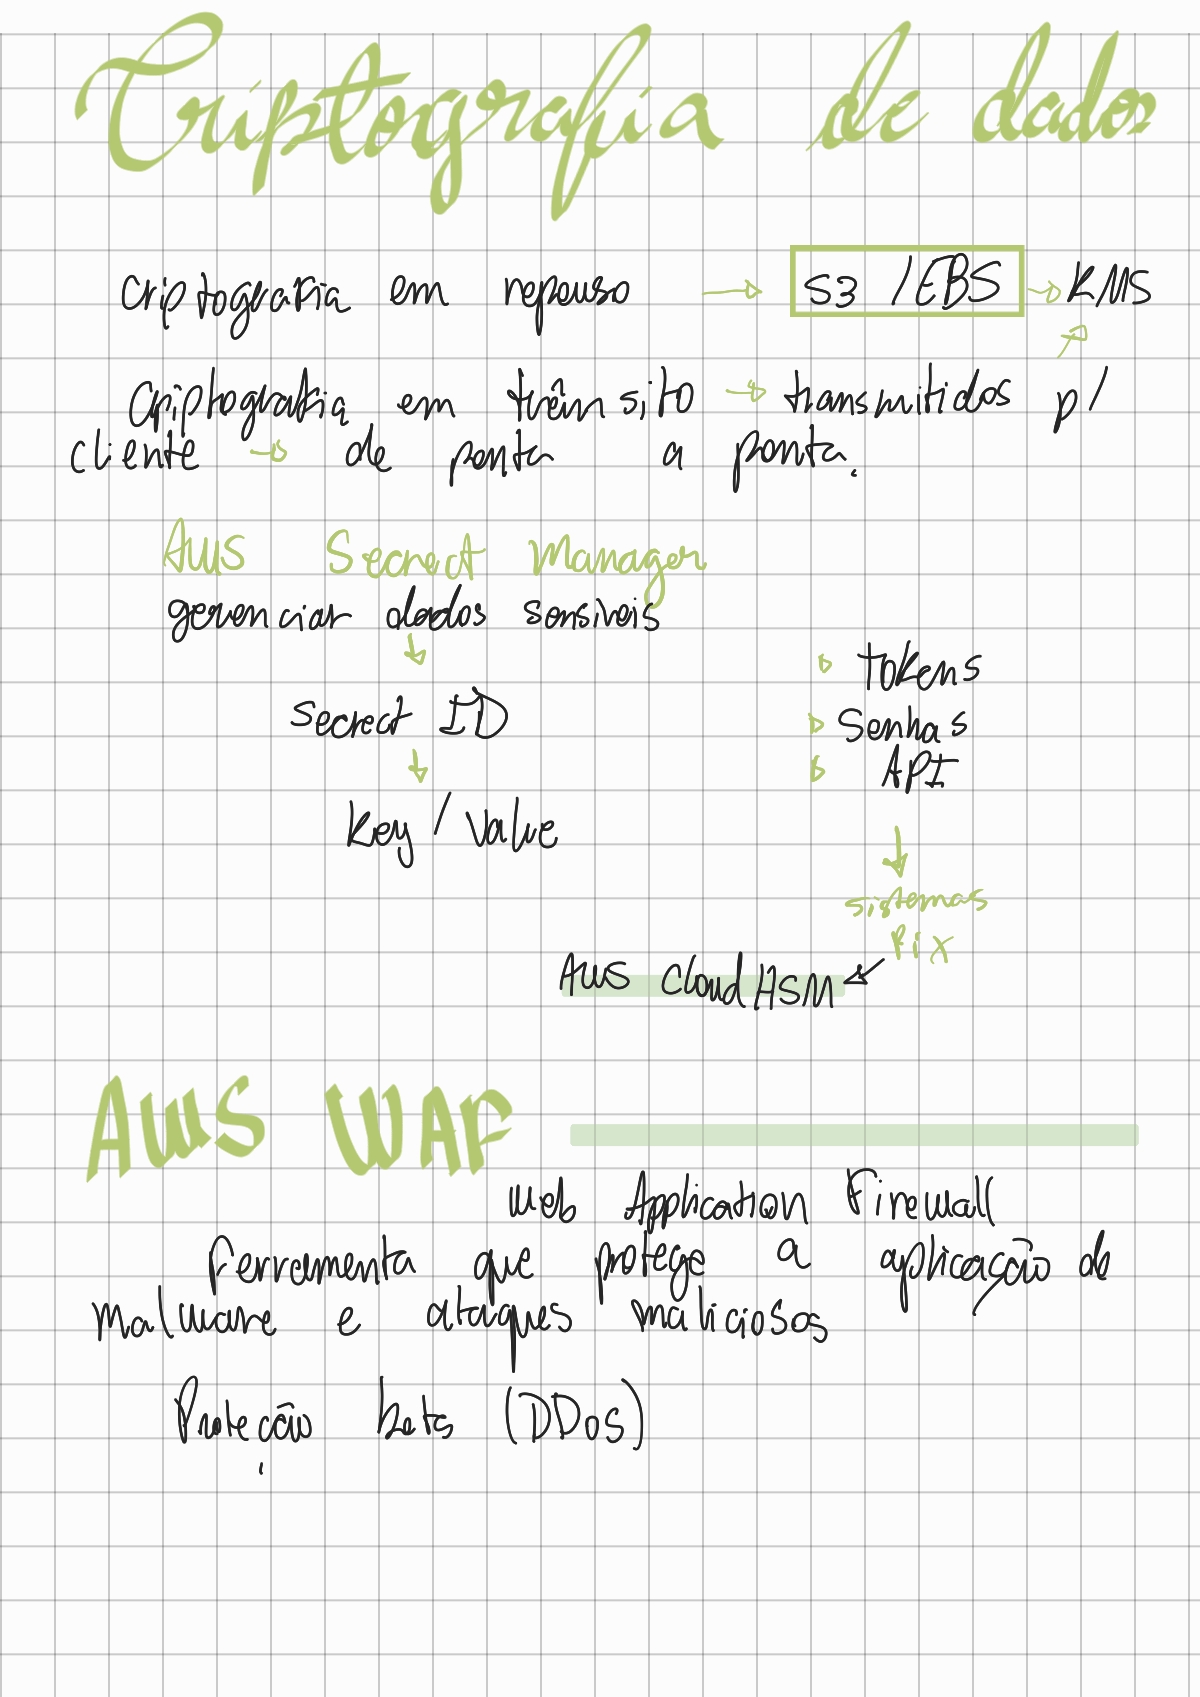 Criptografia de dados
criptografia em repouso → S3 / EBS → KMS
Criptografia em trânsito → transmitidos p/
cliente → de ponta a ponta.
AWS Secrect Manager
gerenciar dados sensiveis
↓
Secrect ID
↓
Key / Value
tokens
Senhas
API
↓
sistemas
Pix
AWS CloudHSM
AWS WAF
Web Application Firewall
ferramenta que protege a aplicação de
malware e ataques maliciosos
Proteção bots (DDoS)